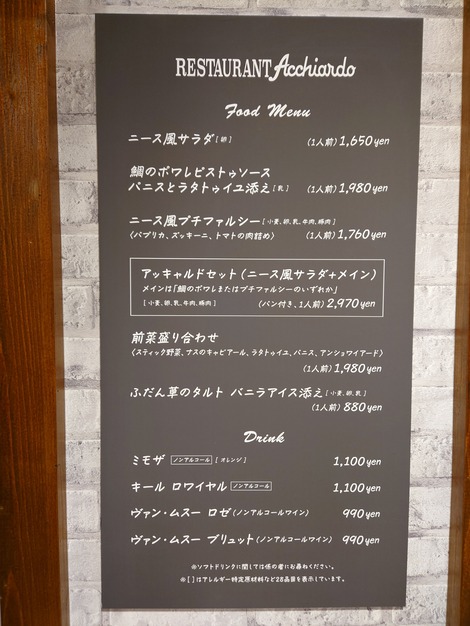 RESTAURANT Acchiardo
Food Menu
ニース風サラダ [卵] (1人前) 1,650yen
鯛のポワレピストゥソース
パニスとラタトゥイユ添え [乳] (1人前) 1,980yen
ニース風プチファルシー [小麦、卵、乳、牛肉、豚肉]
〈パプリカ、ズッキーニ、トマトの肉詰め〉 (1人前) 1,760yen
アッキャルドセット (ニース風サラダ+メイン)
メインは「鯛のポワレまたはプチファルシーのいずれか」
[小麦、卵、乳、牛肉、豚肉] (パン付き、1人前) 2,970yen
前菜盛り合わせ
〈スティック野菜、ナスのキャビアール、ラタトゥイユ、パニス、アンショワイアード〉
(1人前) 1,980yen
ふだん草のタルト バニラアイス添え [小麦、卵、乳]
(1人前) 880yen
Drink
ミモザ ノンアルコール [オレンジ] 1,100yen
キール ロワイヤル ノンアルコール 1,100yen
ヴァン・ムスー ロゼ (ノンアルコールワイン) 990yen
ヴァン・ムスー ブリュット (ノンアルコールワイン) 990yen
※ソフトドリンクに関しては係の者にお尋ねください。
※[ ]はアレルギー特定原材料など28品目を表示しています。